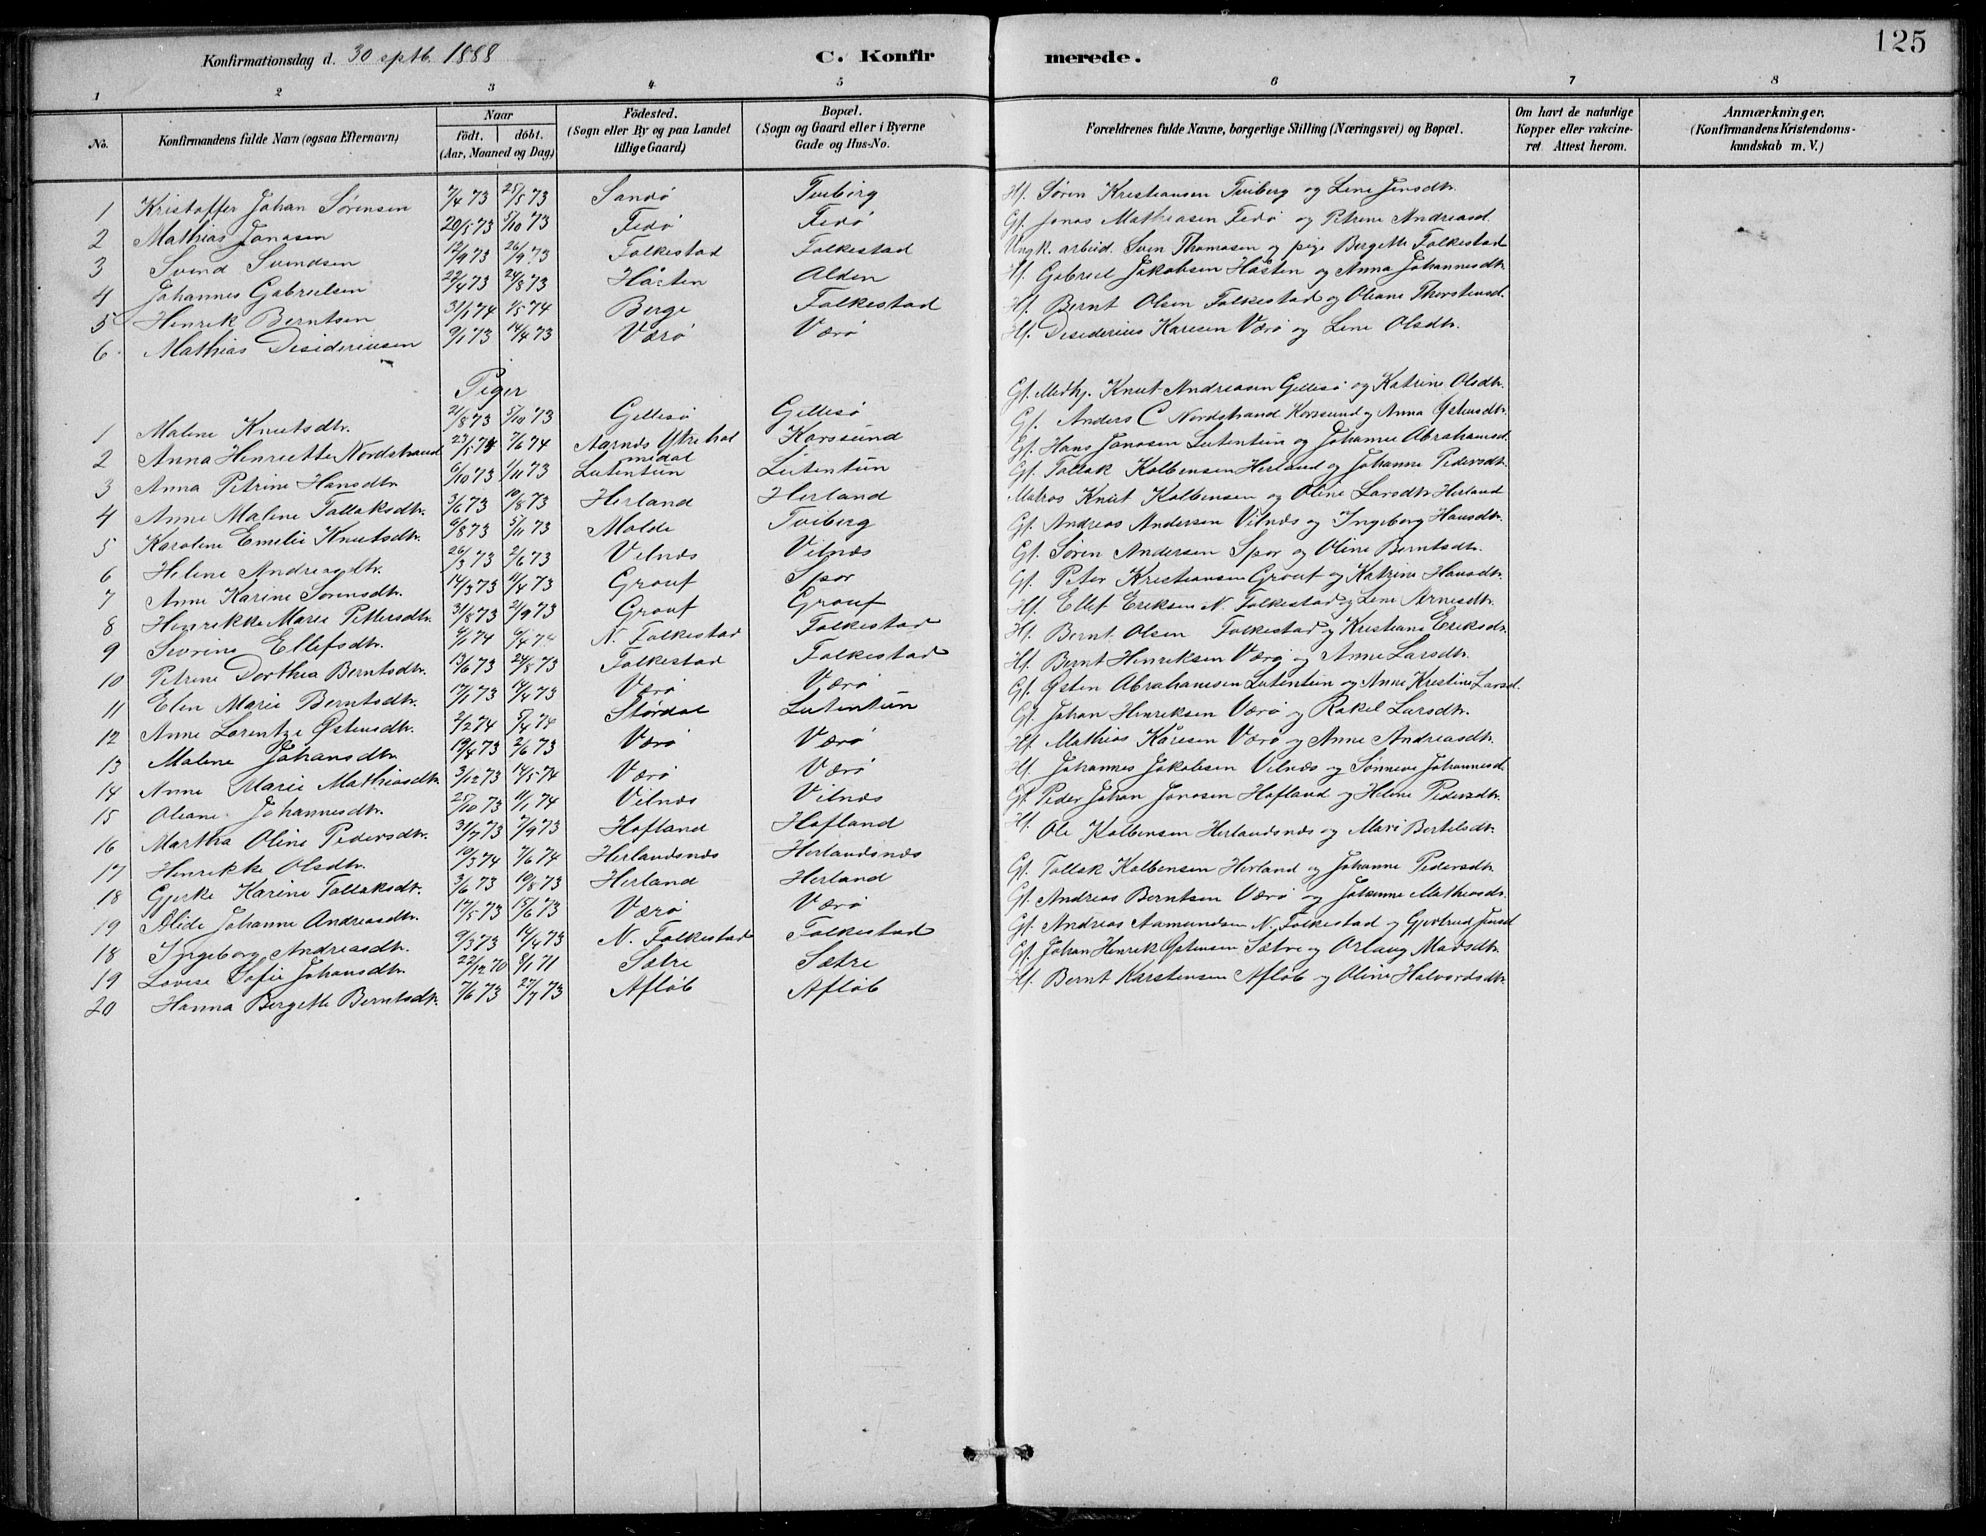 125
Konfirmationsdag d. 30 septb. 1888 C. Konfirmerede.
1 2 3 4 5 6 7 8
No. Konfirmandens fulde Navn (ogsaa Efternavn) Naar födt. döbt. (Aar, Maaned og Dag) Födested. (Sogn eller By og paa Landet tillige Gaard) Bopæl. (Sogn og Gaard eller i Byerne Gade og Hus-No. Forældrenes fulde Navne, borgerlige Stilling (Næringsvei) og Bopæl. Om havt de naturlige Kopper eller vakcineret. Attest herom. Anmærkninger. (Konfirmandens Kristendomskundskab m. V.)
1 Kristoffer Johan Sørensen 7/4 73 25/5 73 Sandø Tviberg Hf. Søren Kristiansen Tviberg og Lene Jensdtr.
2 Mathias Jonasen 20/5 73 5/10 73 Fedø Fedø Gf. Jonas Mathiasen Fedø og Petrine Andreasd.
3 Svend Svendsen 12/9 73 26/9 73 Folkestad Folkestad Ungk. arbeid. Sven Thomasen og pige Bergette Folkestad
4 Johannes Gabrielsen 22/4 73 24/8 73 Håsten Alden Hf. Gabriel Jakobsen Håsten og Anna Johannesdtr.
5 Henrik Berntsen 31/1 74 1/5 74 Berge Folkestad Hf. Bernt Olsen Folkestad og Oliane Thorstensd.
6 Mathias Desideriusen 9/1 73 14/4 73 Værø Værø Hf. Desiderius Karesen Værø og Lene Olsdtr.
Piger
1 Malene Knutsdtr. 21/8 73 5/10 73 Gellesø Gellesø Gf. Medhj. Knut Andreasen Gellesø og Katrine Olsdtr.
2 Anna Henriette Nordstrand 23/5 74 7/6 74 Aarnæs Ytre Holmedal Korssund Gf. Anders C Nordstrand Korssund og Anna Østensdtr.
3 Anna Petrine Hansdtr. 6/10 73 1/11 73 Lutentun Lutentun Gf. Hans Jonasen Lutentun og Johanne Abrahamsd.
4 Anne Malene Tollaksdtr. 3/6 73 10/8 73 Herland Herland Gf. Tollak Kolbensen Herland og Johanne Pedersdtr.
5 Karoline Emelie Knutsdtr. 6/8 73 5/11 73 Molde Tviberg Matros Knut Kolbensen og Oline Larsdtr. Herland
6 Helene Andreasdtr. 26/3 73 2/6 73 Vilnæs Vilnæs Gf. Andreas Andersen Vilnæs og Ingeborg Hansdtr.
7 Anne Karine Sørensdtr. 14/3 73 11/4 73 Grouf Spor Gf. Søren Andersen Spor og Oline Berntsdtr.
8 Henrikke Marie Pettersdtr. 31/8 73 2/9 73 Grouf Grouf Gf. Peter Kristiansen Grouf og Katrine Hansdtr.
9 Sevrine Ellefsdtr. 9/1 74 6/4 74 N. Folkestad Folkestad Hf. Ellef Eriksen N. Folkestad og Lene Arnesdtr.
10 Petrine Dorthea Berntsdtr. 13/6 73 24/8 73 Folkestad Folkestad Hf. Bernt Olsen Folkestad og Kristiane Eriksdtr.
11 Elen Marie Berntsdtr. 17/1 73 14/4 73 Værø Værø Hf. Bernt Henriksen Værø og Anne Larsdtr.
12 Anne Lorentze Østensdtr. 2/2 74 5/4 74 Størdal Lutentun Gf. Østen Abrahamsen Lutentun og Anne Kristine Larsd.
13 Malene Johansdtr. 19/4 73 2/6 73 Værø Værø Gf. Johan Henriksen Værø og Rakel Larsdtr.
14 Anne Marie Mathiasdtr. 3/12 73 14/5 74 Værø Værø Hf. Mathias Kåresen Værø og Anne Andreasdtr.
15 Oliane Johannesdtr. 25/10 73 11/1 74 Vilnæs Vilnæs Hf. Johannes Jakobsen Vilnæs og Sønneve Johannesd.
16 Martha Oline Pedersdtr. 31/7 73 7/9 73 Hofland Hofland Gf. Peder Johan Jonasen Hofland og Helene Pedersdtr.
17 Henrikke Olsdtr. 10/3 74 7/6 74 Herlandsnæs Herlandsnæs Hf. Ole Kolbensen Herlandsnæs og Mari Bertelsdtr.
18 Gjerke Karine Tollaksdtr. 3/6 73 10/8 73 Herland Herland Gf. Tollak Kolbensen Herland og Johanne Pedersdtr.
19 Alide Johanne Andreasdtr. 17/5 73 15/6 73 Værø Værø Gf. Andreas Berntsen Værø og Johanne Mathiasdtr.
18 Ingeborg Andreasdtr. 9/3 73 14/4 73 N. Folkestad Folkestad Gf. Andreas Aamundsen N. Folkestad og Gjertrud Jensd
19 Lovise Sofie Johansdtr. 22/12 70 8/1 71 Sætre Sætre Gf. Johan Henrik Østensen Sætre og Orlaug Madsdtr.
20 Hanna Bergette Berntsdtr. 7/6 73 27/7 73 Afløb Afløb Hf. Bernt Karstensen Afløb og Oline Halvordsdtr.